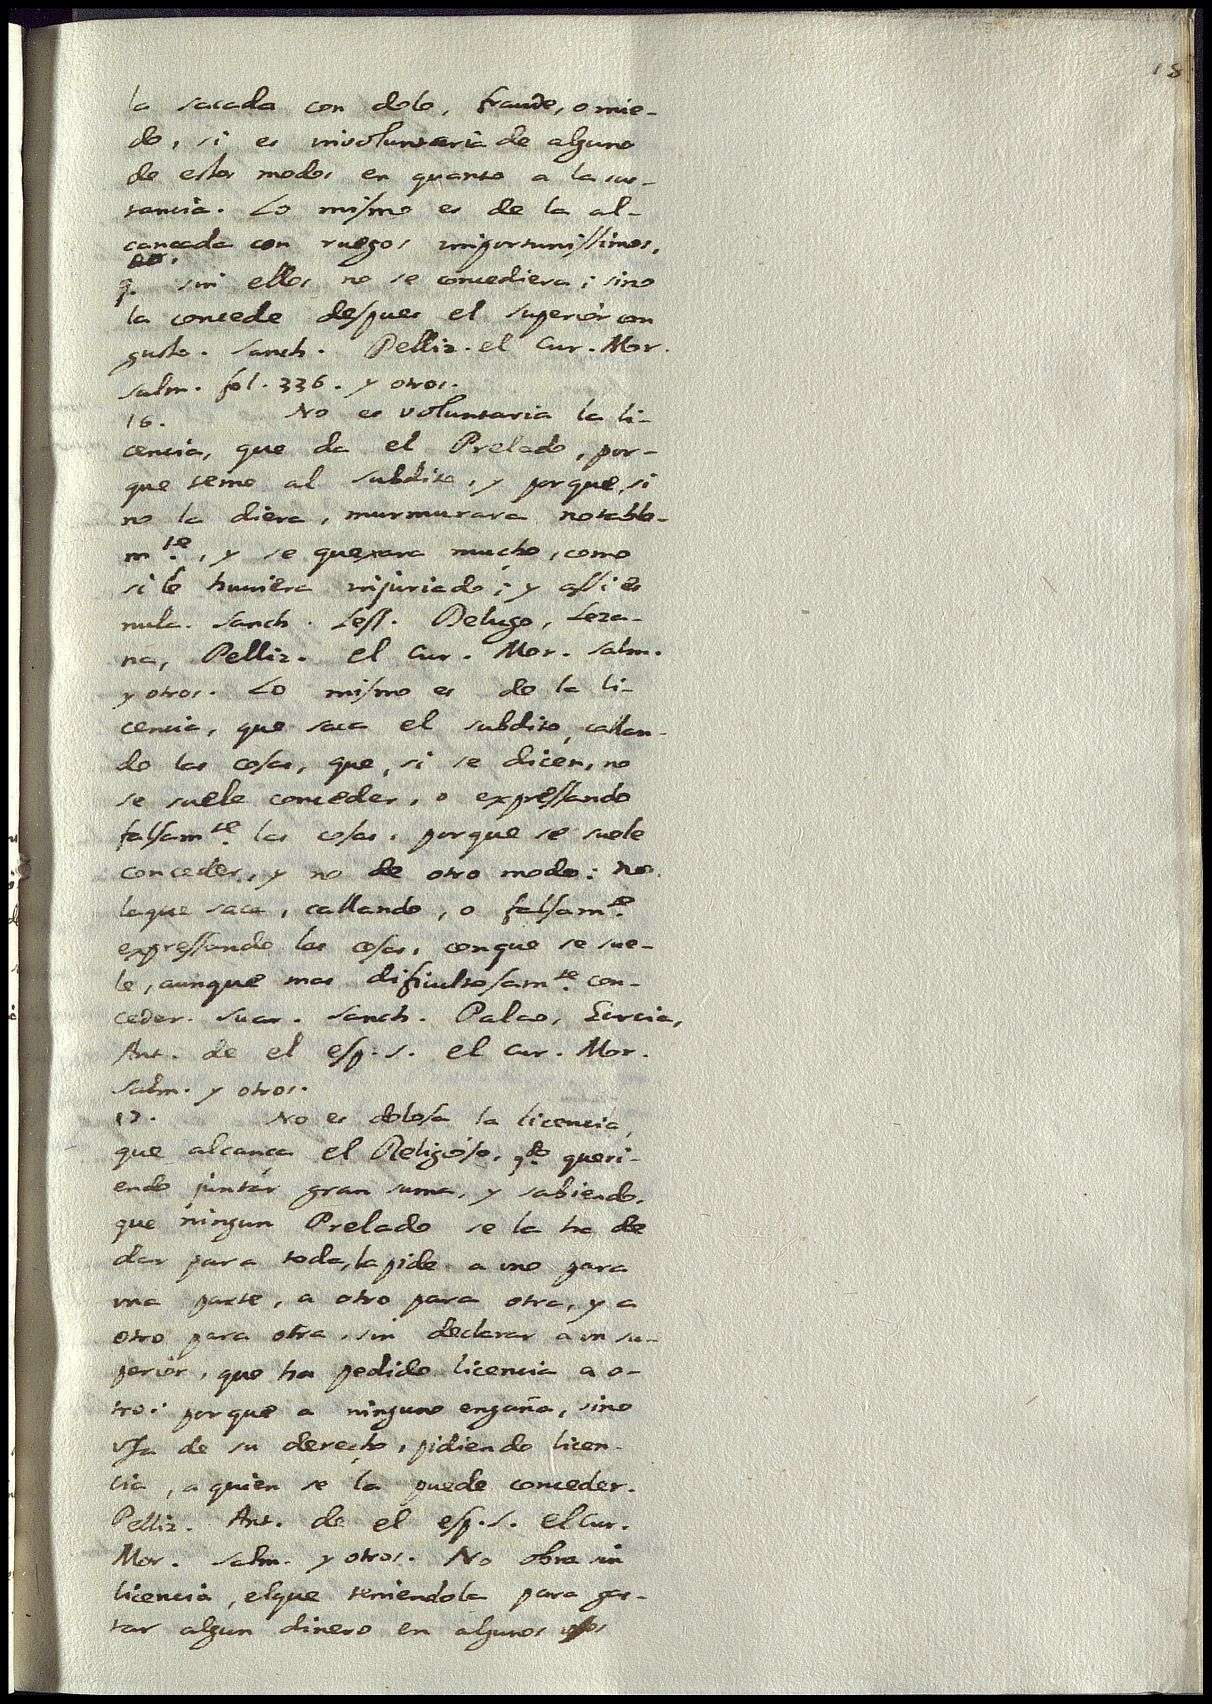 18
la sacada con dolo, fraude, o mie-
do, si es involuntaria de alguno
de estos modos en quanto a la sus-
tancia. Lo mismo es de la al-
canzada con ruegos importunissimos,
q. sin ellos no se concediera; sino
la concede despues el superior con
gusto. Sanch. Pelliz. el Cur. Mor.
Salm. fol. 336. y otros.
16. No es voluntaria la li-
cencia, que da el Prelado, por-
que teme al subdito, y porque, si
no la diera, murmurara notable-
mte., y se quexara mucho, como
si le huviera injuriado; y assi es
nula. Sanch. Less. Delugo, Leza-
na, Pelliz. el Cur. Mor. Salm.
y otros. Lo mismo es de la li-
cencia, que saca el subdito, callan-
do las cosas, que, si se dicen, no
se suele conceder, o expressando
falsamte. las cosas, porque se suele
conceder, y no de otro modo: no
la que saca, callando, o falsamte.
expressando las cosas, con que se sue-
le, aunque mas dificultosamte. con-
ceder. Suar. Sanch. Palao, Garcia,
Ant. de el esp. s. el Cur. Mor.
Salm. y otros.
17. No es dolosa la licencia,
que alcanca el Religioso, qdo. queri-
endo juntar gran suma, y sabiendo,
que ningun Prelado se la ha de
dar para toda, la pide a uno para
una parte, a otro para otra, y a
otro para otra, sin declarar a un su-
perior, que ha pedido licencia a o-
tro: porque a ninguno engaña, sino
usa de su derecho, pidiendo licen-
cia, a quien se la puede conceder.
Pelliz. Ant. de el esp. s. el Cur.
Mor. Salm. y otros. No obra sin
licencia, el que teniendola para gas-
tar algun dinero en algunos usos